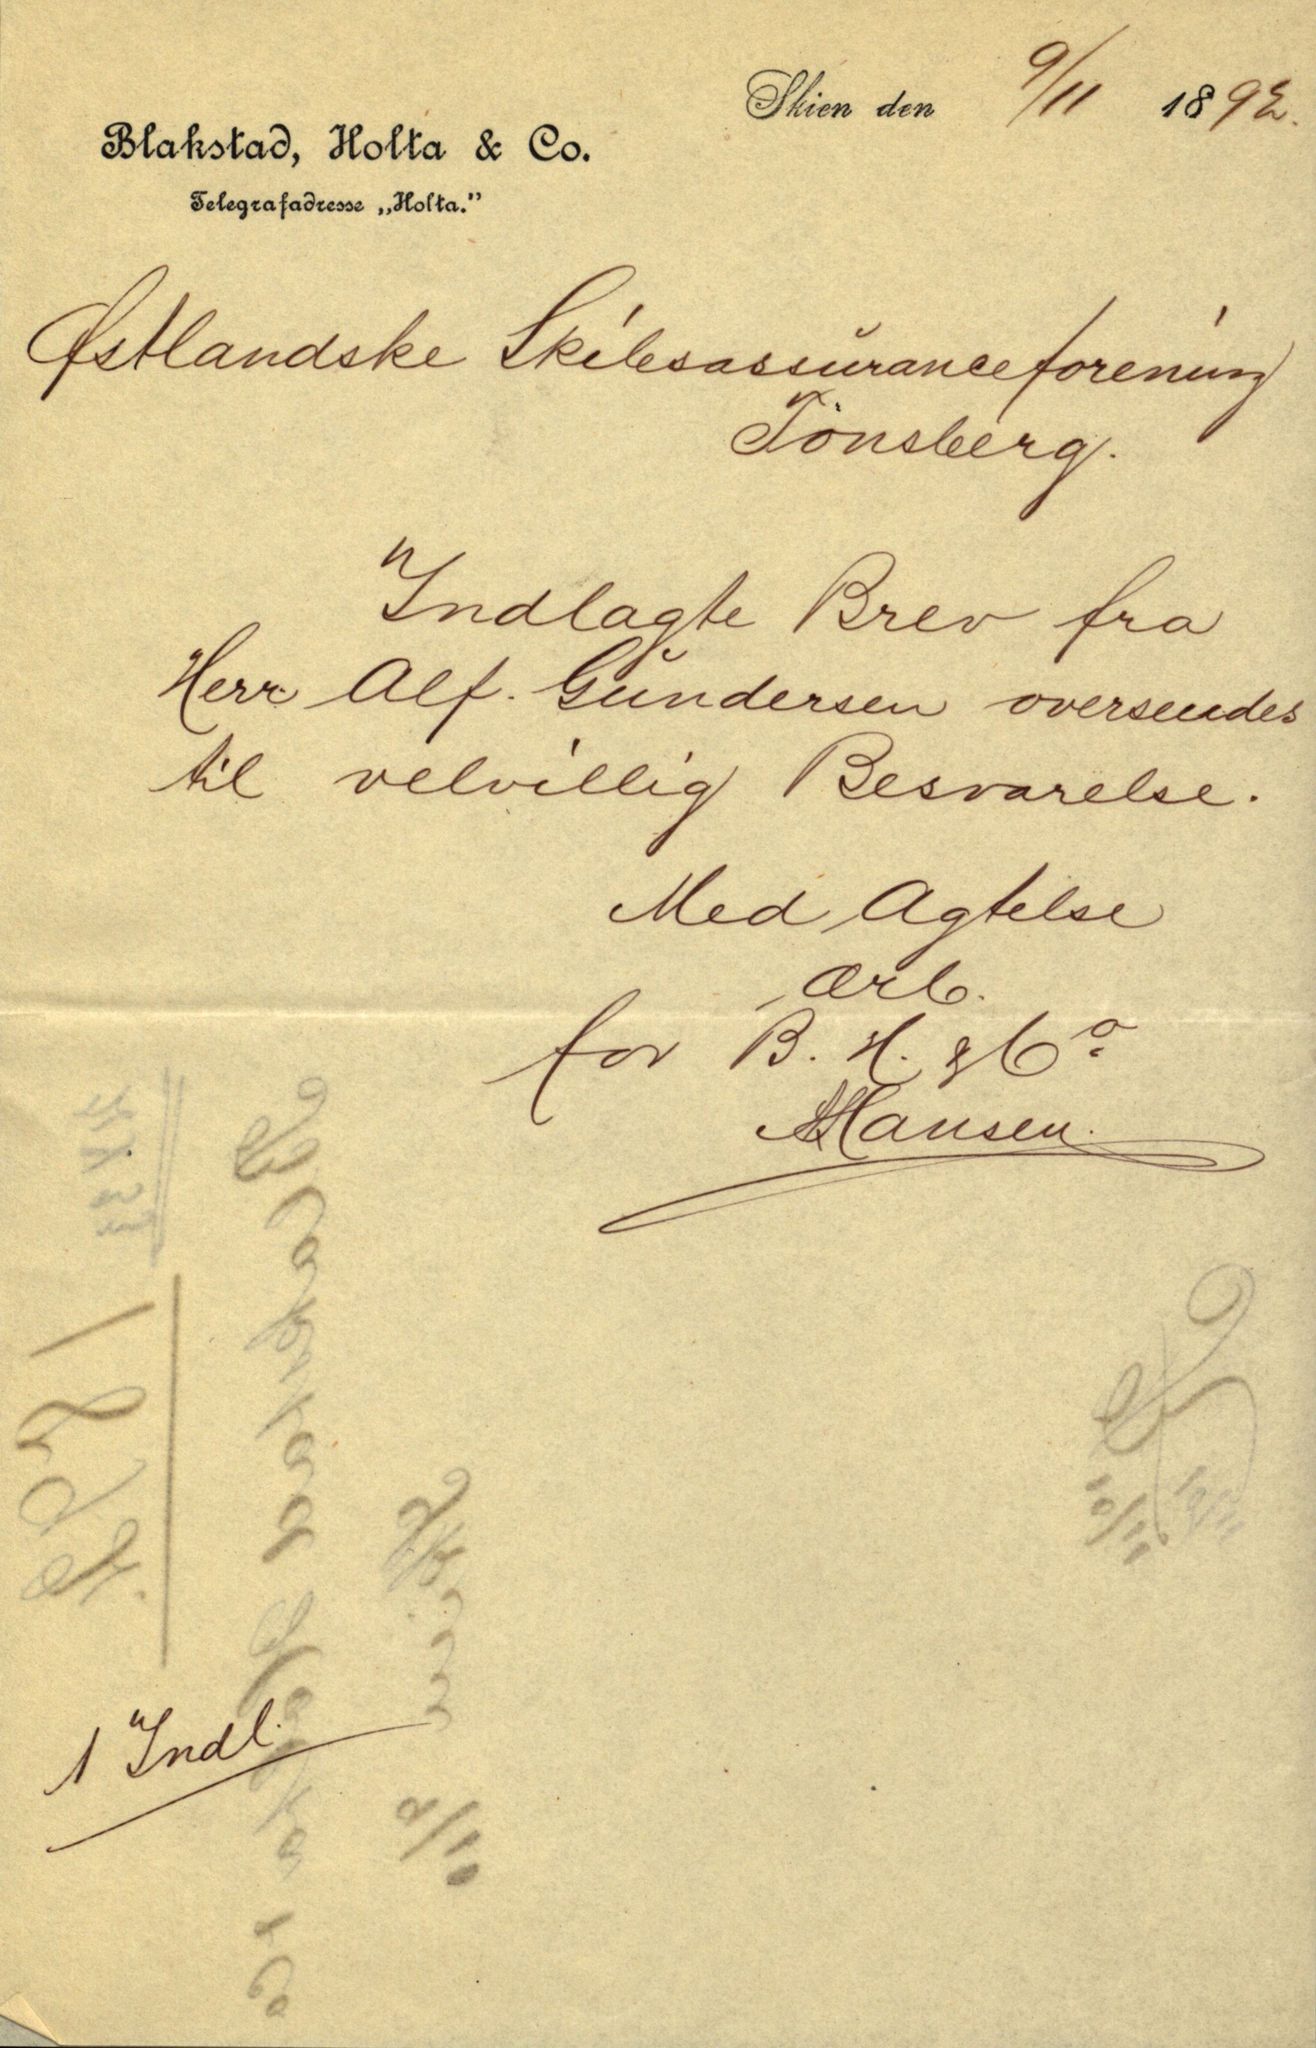 Skien den 9/11 1892.
Blakstad, Holta & Co.
Telegrafadresse „Holta.”
Østlandske Skibsassuranceforening
Tönsberg.
Indlagte Brev fra
Herr Alf. Gundersen oversendes
til velvillig Besvarelse.
Med Agtelse
ærb.
for B. H. & Co
Hansen.
1 Indl.